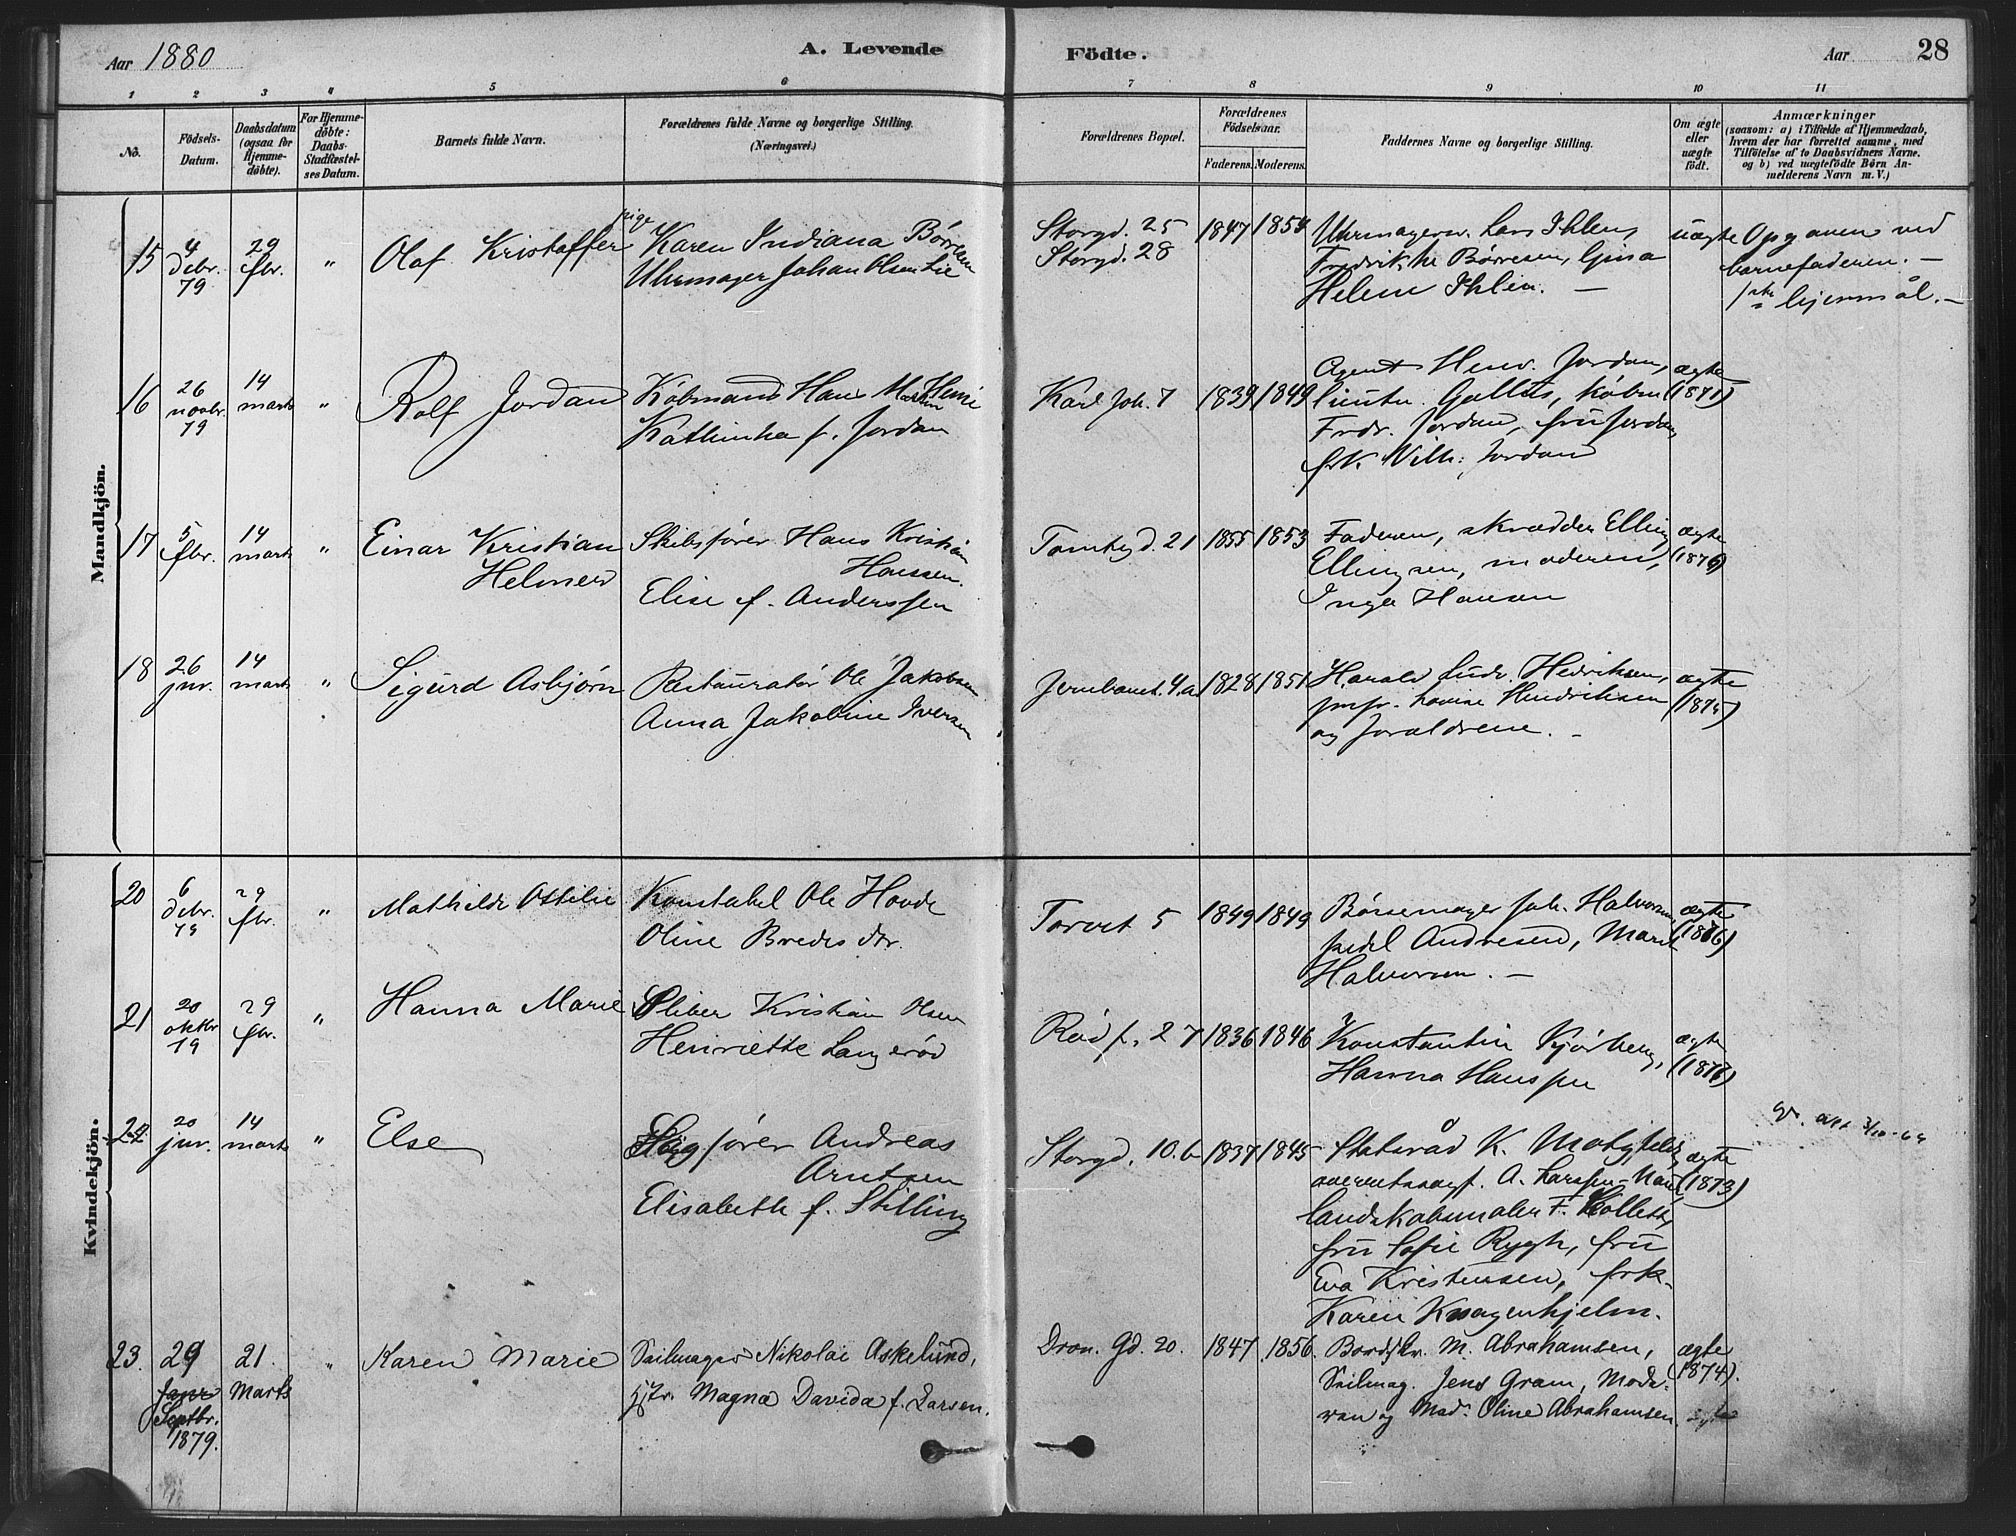 Aar 1880 A. Levende Födte. Aar 28
1 2 3 4 5 6 7 8 9 10 11
No.
Födsels-Datum.
Daabsdatum (ogsaa for Hjemme-døbte).
For Hjemme-døbte: Daabs-Stadfæstel-ses Datum.
Barnets fulde Navn.
Forældrenes fulde Navne og borgerlige Stilling. (Næringsvei.)
Forældrenes Bopæl.
Forældrenes Födselsaar.
Faderens. Moderens.
Faddernes Navne og borgerlige Stilling.
Om ægte eller uægte födt.
Anmærkninger
(saasom: a) i Tilfælde af Hjemmedaab,
hvem der har forrettet samme, med
Tilföielse af to Daabsvidners Navne.
og b) ved uægtefödte Börn An-
melderens Navn m. V.)
Mandkjön.
15 4 debr. 79 29 fbr. " Olaf Kristoffer
pige Karen Indiana Børresen
Uhrmager Johan Olsen Lie
Storgd. 25
Storgd. 28
1847 1854
Uhrmagersv. Lars Ihlen,
Fredrikke Børresen, Gina
Helene Ihlen. —
uægte
Opgaven ved
barnefaderen. —
hjemmål. —
16 26 novbr. 79 14 marts " Rolf Jordan
Købmand Hans Martin
Kathinka f. Jordan
Karl Joh. 7 1839 1849
Agent Henr. Jordan,
Frdr. Jordan, fru Jordan,
frk. Vilh. Jordan
ægte (1871)
17 5 fbr. 14 marts " Einar Kristian
Helmer
Skibsfører Hans Kristian
Hanssen.
Elise f. Anderssen
Tomtegd. 21 1855 1853
Faderen, skrædder Elling
Ellingsen, moderen,
Inga Hansen
ægte (1876)
18 26 jnr. 14 marts " Sigurd Asbjørn
Restauratør Ole Jakobsen
Anna Jakobine Iversen
Jernbanet. 4.a 1828 1851
Harald Ludv. Hedriksen,
jmfr. Lovise Hendriksen
og foraldrene. —
ægte (1875)
Kvindekjön.
20 6 debr. 79 29 fbr. " Mathilde Ottilie
Konstabel Ole Hovde
Oline Bredesdtr.
Torvet 5 1849 1849
Børsemager Joh. Halvorsen,
pedel Andresen, Marit
Halvorsen. —
ægte (1876)
21 20 oktbr 79 29 fbr. " Hanna Marie
Sliber Kristian Olsen
Henriette Langerød
Rådf. 27 1836 1846
Konstantin Bjørberg,
Hanna Hanssen
ægte
22 20 jnr. 14 marts " Else
Sagfører Andreas
Arntsen
Elisabeth f. Stilling
Storgd. 10.b 1837 1845
Statsråd K. Motzfeldt,
overretssagf. A. Larssen-Naur
landskabsmaler F. Kollett,
fru Sofie Rygh, fru
Eva Kristensen, frk.
Karen Knagenhjelm.
ægte (1873)
23. 29 Septbr. 1879. 21. Marts " Karen Marie
Seilmager Nikolai Askelund,
Hstr. Magna Davida f. Larsen.
Dron. Gd. 20. 1847 1856.
Bordskr. M. Abrahamsen,
Seilmag. Jens Gram, Mode-
ren og Mad. Oline Abrahamsen.
ægte (1874).